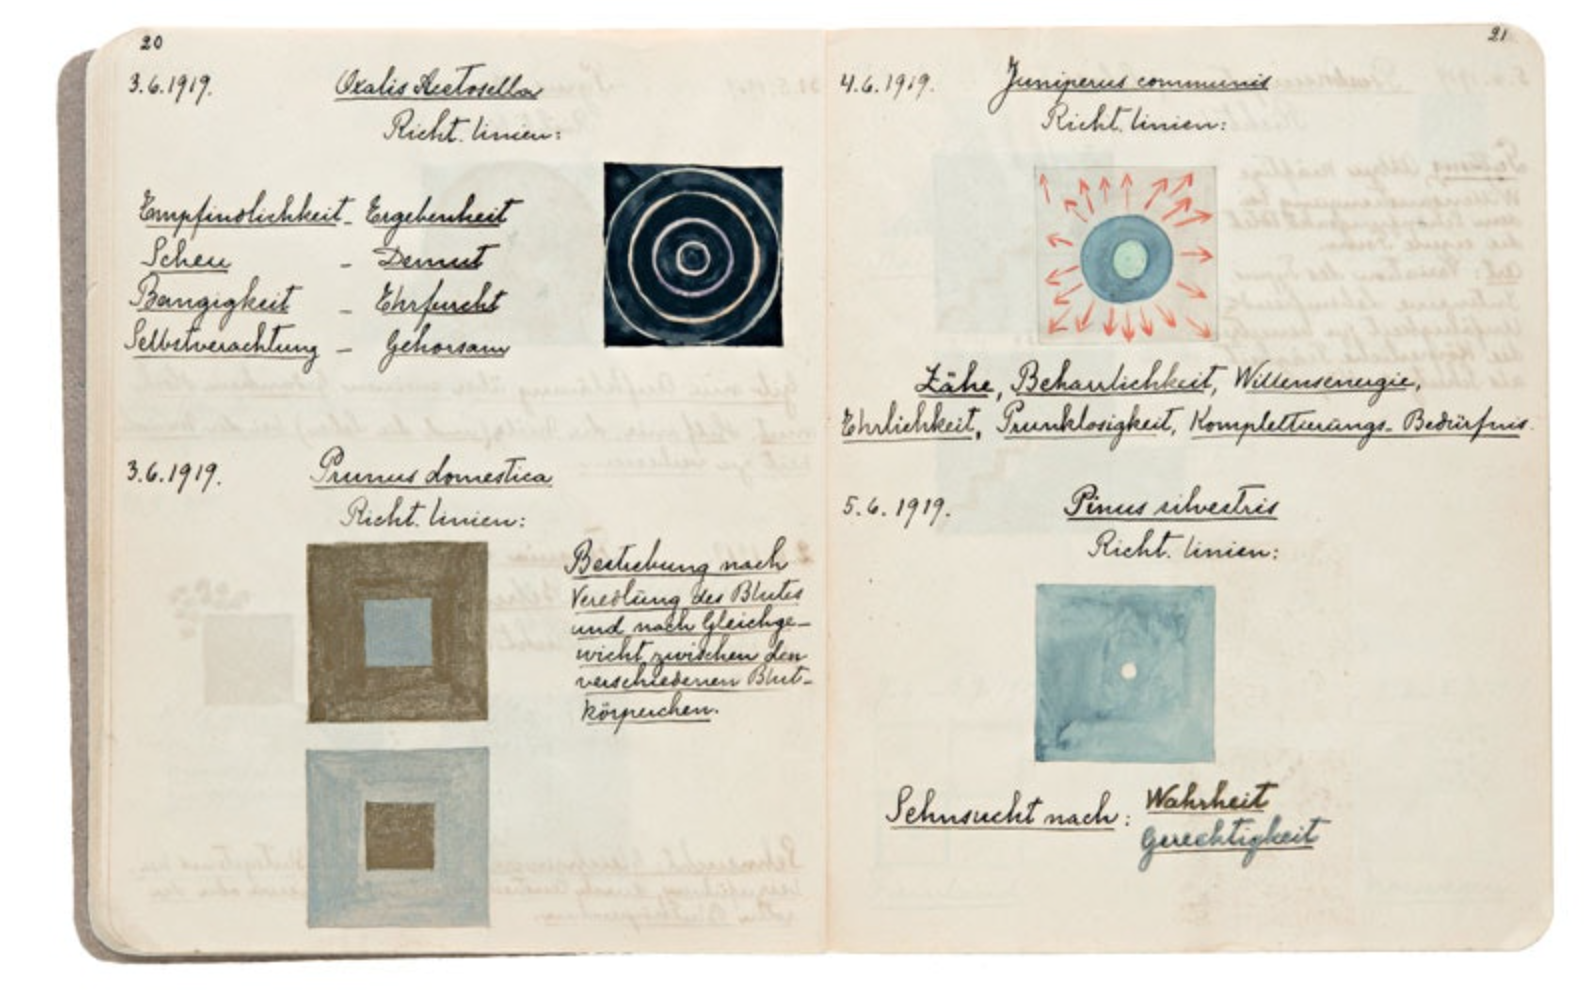 20
3.6.1919. Oxalis Acetosella
Richt. linien:
Empfindlichkeit - Ergebenheit
Scheu - Demut
Bangigkeit - Ehrfurcht
Selbstverachtung - Gehorsam
3.6.1919. Prunus domestica
Richt. linien:
Bestrebung nach
Veredlung des Blutes
und nach Gleichge-
wicht zwischen den
verschiedenen Blut-
körperchen.
21
4.6.1919. Juniperus communis
Richt. linien:
Zähe, Beharrlichkeit, Willensenergie,
Ehrlichkeit, Prunklosigkeit, Komplettierungs-Bedürfnis.
5.6.1919. Pinus silvestris
Richt. linien:
Sehnsucht nach: Wahrheit
Gerechtigkeit